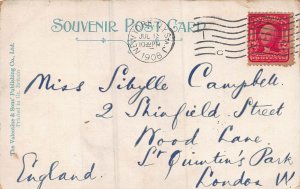 SOUVENIR POST CARD
JUL 12
1908
C
The Valentine & Sons' Publishing Co., Ltd.
Printed in Gt. Britain
Miss Sibylle Campbell.
2 Shinfield Street
Wood Lane,
St Quintin's Park
England.
London W.